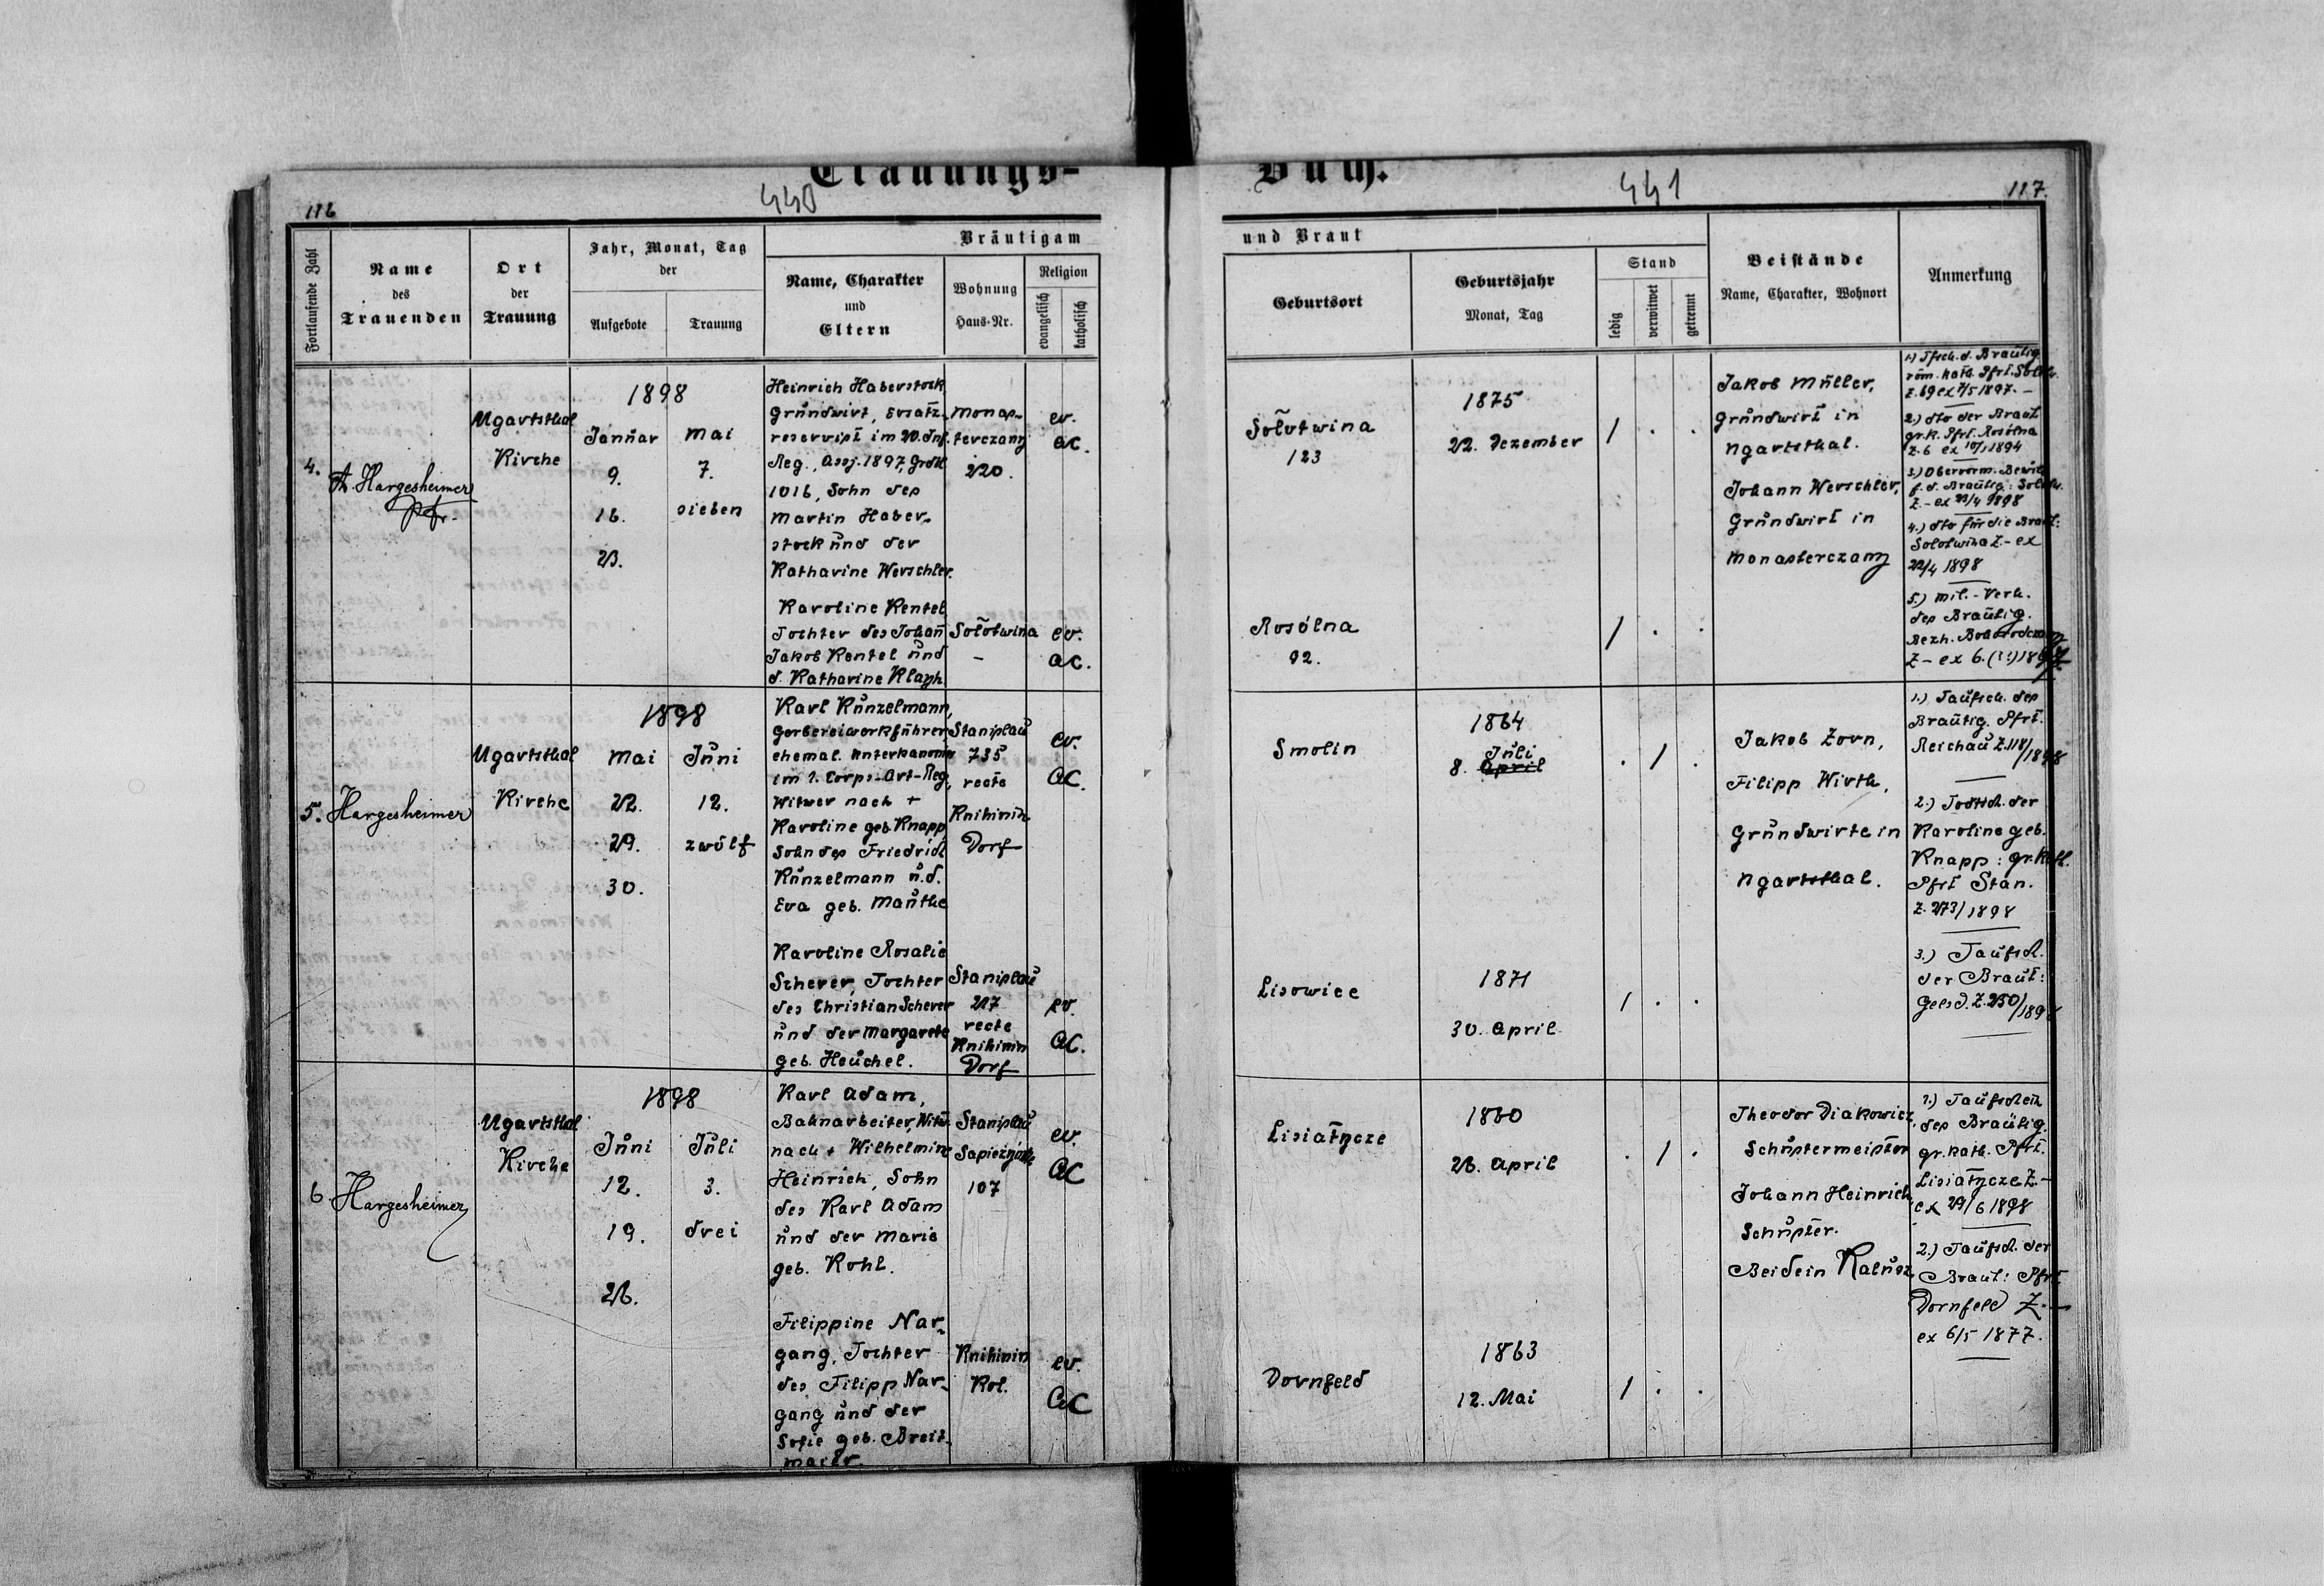 Trauungs-
Buch.
440
441
116
117.
Fortlaufende Zahl
Name
des
Trauenden
Ort
der
Trauung
Jahr, Monat, Tag
der
Aufgebote
Trauung
Bräutigam
Name, Charakter
und
Eltern
Wohnung
Haus-Nr.
Religion
evangelisch
katholisch
und Braut
Geburtsort
Geburtsjahr
Monat, Tag
Stand
ledig
verwitwet
getrennt
Beistände
Name, Charakter, Wohnort
Anmerkung
4.
A. Hargesheimer
Pfr.
Ugartsthal
Kirche
1898
Januar
9.
16.
23.
Mai
7.
sieben
Heinrich Haberstock
Grundwirt, Ersatz-
reservist im 20. Inf.
Reg., Assj. 1897, Grdbl
1016, Sohn des
Martin Haber-
stock und der
Katharine Werschler.
Monas-
terczany
220.
ev.
AC.
Karoline Kentel
Tochter des Johan̄
Jakob Kentel und
d. Katharine Klayh
Sołotwina
-
ev.
AC.
Sołotwina
123
1875
22. Dezember
/ . .
Rosólna
92.
/ . .
Jakob Müller,
Grundwirt in
Ugartsthal.
Johann Werschler,
Grundwirt in
Monasterczany
1.) Tfsch. d. Bräutig.
röm. kath. Pfrt. Solotw.
Z. 69 ex 7/5 1897. —
2.) dto der Braut
gr. k. Pfrt. Rosólna
Z. 6 ex 10/1 1894
3.) Obervorm. Bewill.
f. d. Bräutig: Solotw.
Z.- ex 22/4 1898
4.) dto für die Braut:
Solotwina Z.- ex
22/4 1898
5.) Mil.-Verh.
des Bräutig.
Bezh. Bohorodczany
Z- ex 6.
5.
Hargesheimer
Ugartsthal
Kirche
1898
Mai
22.
29.
30.
Juni
12.
zwölf
Karl Künzelmann,
Gerbereiwerkführer
ehemal. Unterkanonier
im 1. Corps-Art-Reg,
Witwer nach +
Karoline geb. Knapp
Sohn des Friedrich
Künzelmann u. d.
Eva geb. Mauthe
Stanislau
735
recte
Knihinin
Dorf
ev.
AC.
Karoline Rosalie
Scherer, Tochter
des Christian Scherer
und der Margarete
geb. Heuchel.
Stanislau
217
recte
Knihinin
Dorf
ev.
AC.
Smolin
1864
8. Juli
April
. / .
Lisowice
1871
30. April
/ . .
Jakob Zorn,
Filipp Wirth,
Grundwirte in
Ugartsthal.
1.) Taufsch. des
Bräutig. Pfrt.
Reichau Z. 118/1898
2.) Todtsch. der
Karoline geb.
Knapp: gr. kath.
Pfrt Stan.
Z. 273/1898
3.) Taufsch.
der Braut:
Gelsd. Z. 250/189
6
Hargesheimer
Ugartsthal
Kirche
1898
Juni
12.
19.
26.
Juli
3.
drei
Karl Adam,
Bahnarbeiter, Witw.
nach + Wilhelmine
Heinrich, Sohn
des Karl Adam
und der Marie
geb. Kohl.
Stanislau
107
ev.
AC
Filippine Nar-
gang, Tochter
des Filipp Nar-
gang und der
Sofie geb. Breit-
maier.
Knihinin
Kol.
ev.
AC
Lisiatycze
1860
26. April
. / .
Dornfeld
1863
12. Mai
/ . .
Theodor Diakowicz,
Schustermeister
Johann Heinrich
Schuster.
Beide in Kalusz
1.) Taufschein
des Bräutig.
gr. kath. Pfrt.
Lisiatycze Z.-
ex 29/6 1898
2.) Taufsch. der
Braut: Pfrt
Dornfeld Z.—
ex 6/5 1877.